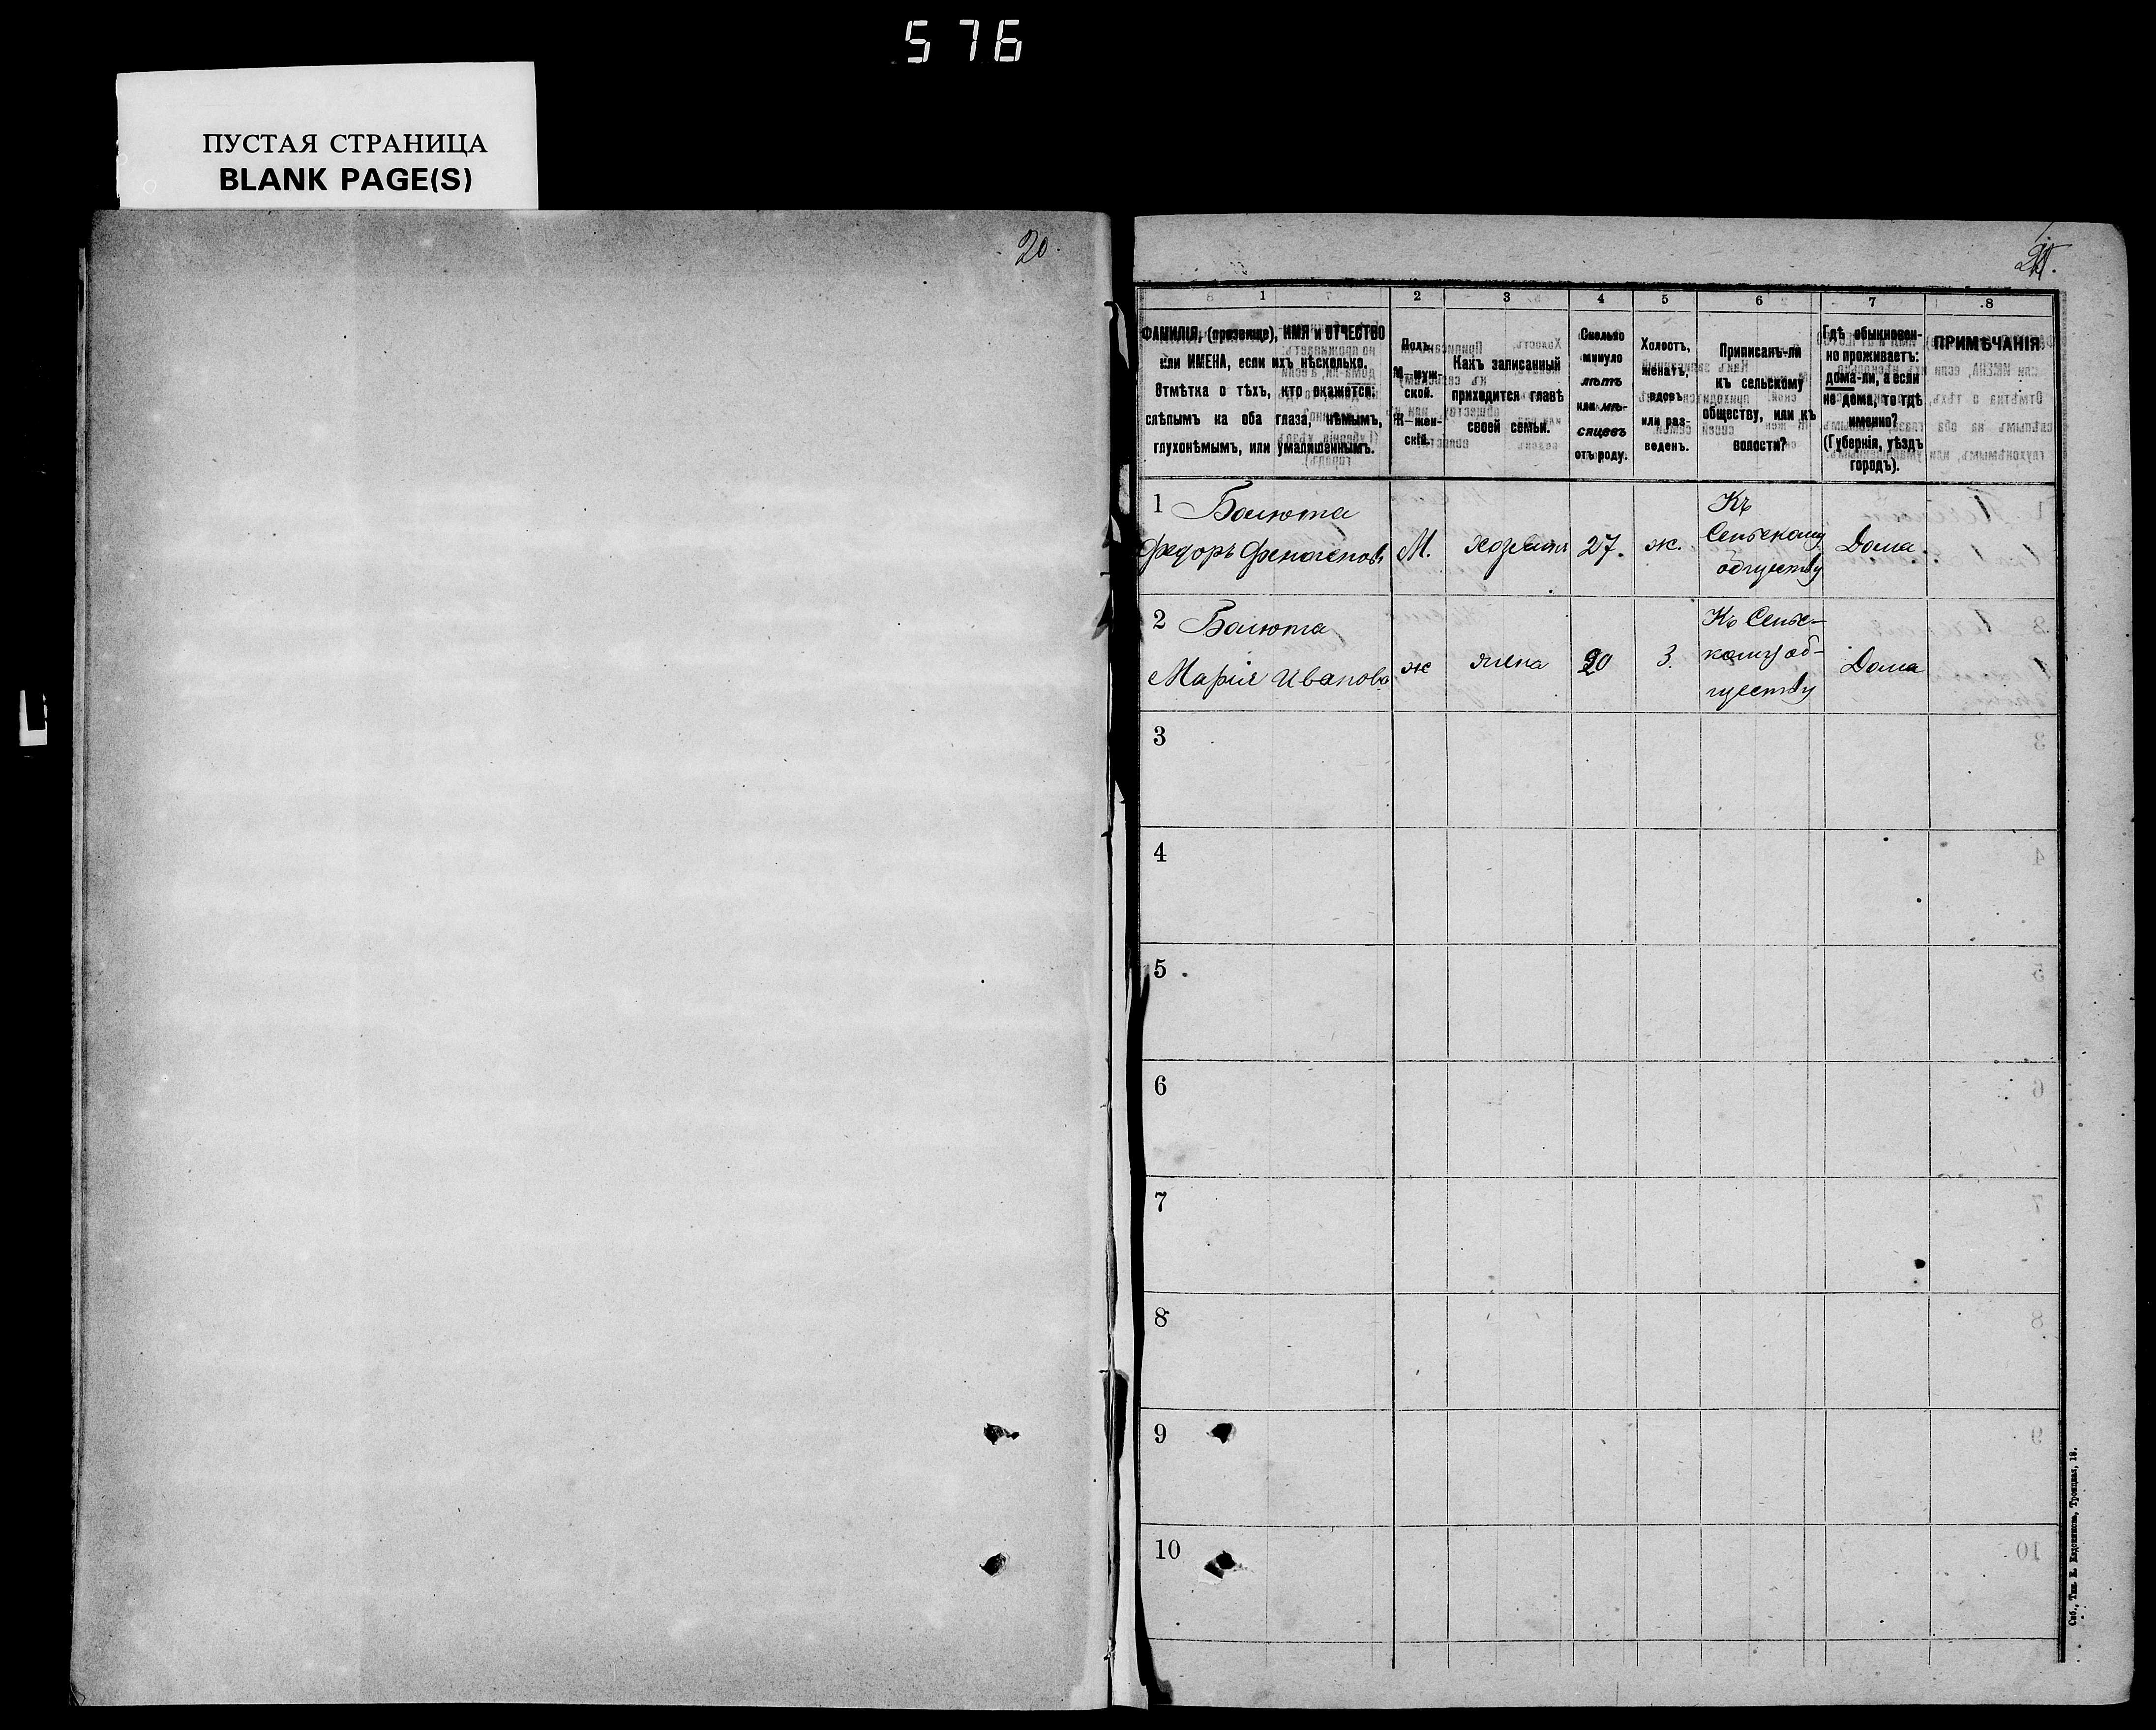 576
ПУСТАЯ СТРАНИЦА
BLANK PAGE(S)
20.
1 2 3 4 5 6 7 8
ФАМИЛІЯ, (прозвище), ИМЯ и ОТЧЕСТВО
или ИМЕНА, если ихъ нѣсколько.
Отмѣтка о тѣхъ, кто окажется:
слѣпымъ на оба глаза, нѣмымъ,
глухонѣмымъ, или умалишеннымъ.
Полъ.
М—муж-
ской.
Ж—жен-
скій.
Какъ записанный
приходится главѣ
своей семьи.
Сколько
минуло
лѣтъ
или мѣ-
сяцевъ
отъ роду.
Холостъ,
женатъ,
вдовъ
или раз-
веденъ.
Приписанъ-ли
къ сельскому
обществу, или къ
волости?
Гдѣ обыкновен-
но проживаетъ:
дома-ли, а если
не дома, то гдѣ
именно?
(Губернія, уѣздъ
городъ).
ПРИМѢЧАНІЯ
1 Балюта
Федоръ
М.
хозяинъ
27.
ж.
Къ
Сельскому
обществу
Дома
2 Балюта
Марія Иванова
ж
жена
20
З.
Къ Сельс-
кому об-
ществу
Дома
3
4
5
6
7
8
9
10
Спб., Тип. Е. Евдокимова, Троицкая, 18.